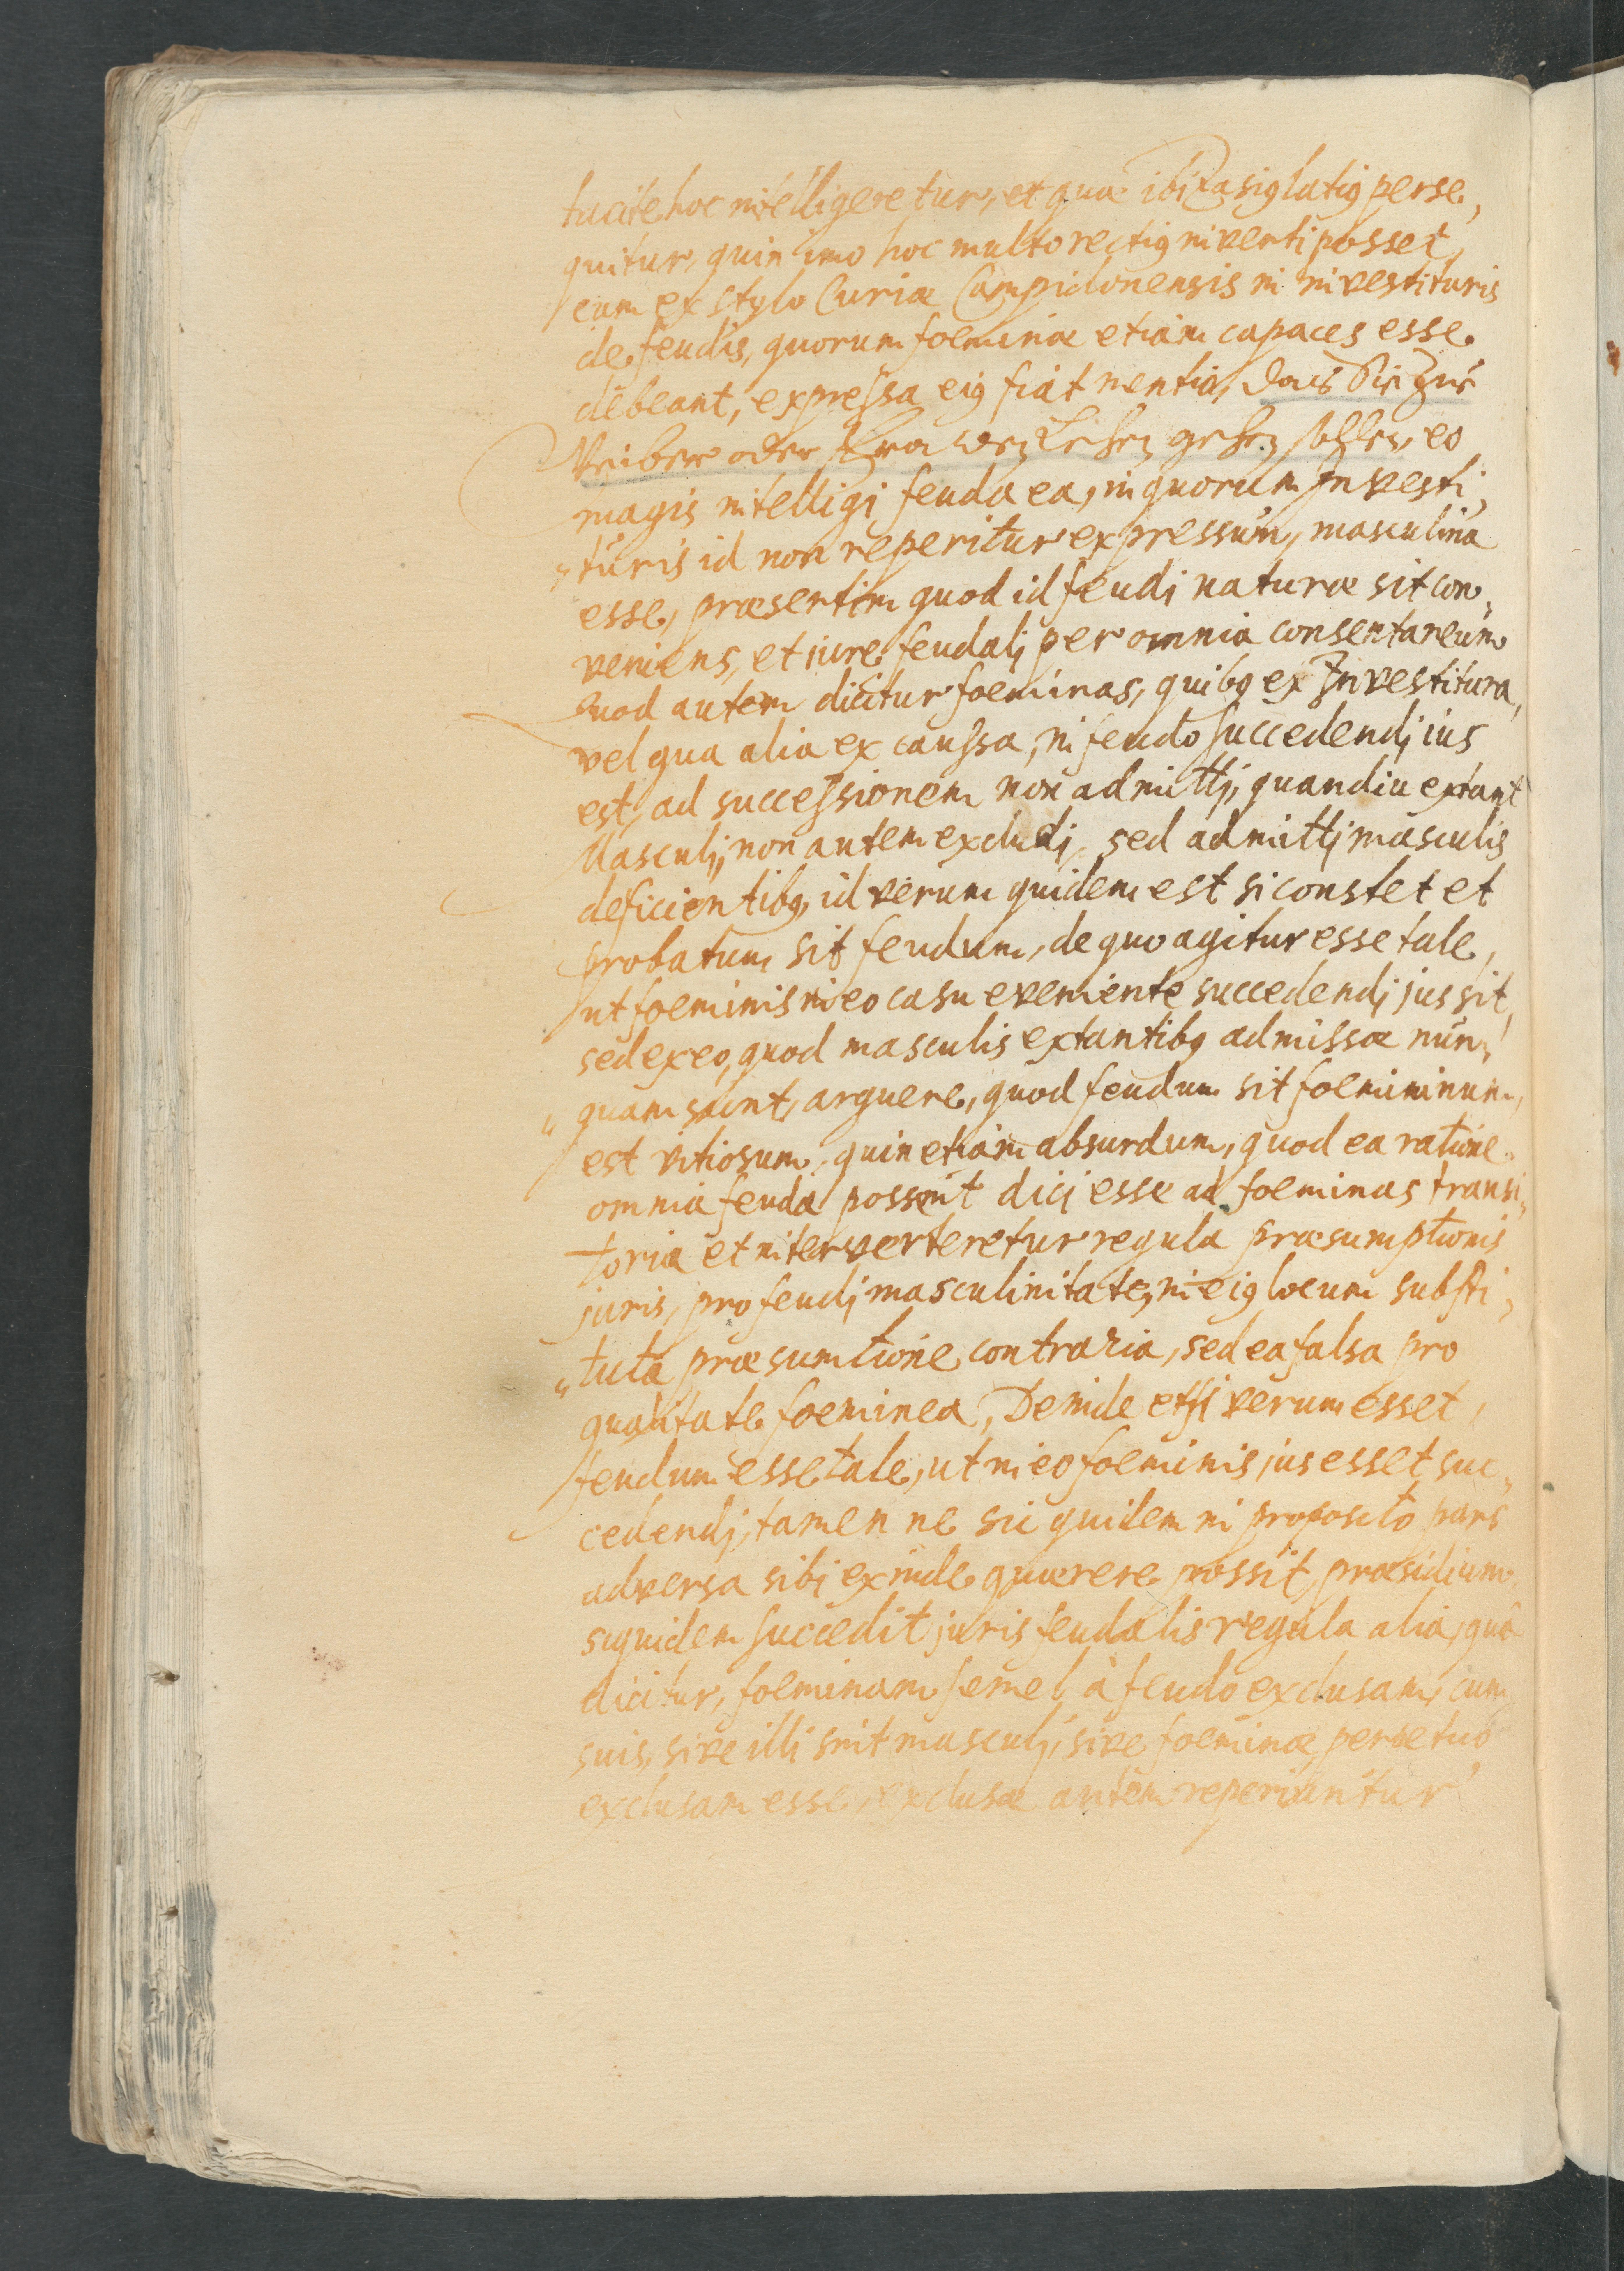 tacite hoc intelligeretur, et quae ibi Rasig latig perse„
quitur, quin imo hoc multo rectig inverti posset,
cum ex stylo Curiae Campidonensis in investituris
de feudis, quorum foeminae etiam capaces esse
debeant, expressa eig fiat mentio, das Sie Zue
Weiber oder Frawen Lehen gehen sollen, eo
magis intelligi feuda ea, in quorum Investi„
„turis id non reperitur expressum, masculina
esse, praesertim quod id feudi naturae sit con„
veniens, et jure feudalj per omnia consentaneum
Quod autem dicitur foeminas, quibg ex Investitura,
vel qua alia ex caussa, in feudo succedendj ius
est, ad successionem non admittj, quandiu extant
Masculj, non autem excludj, sed admittj masculis
deficientibg, id verum quidem est si constet et
probatum sit feudum, de quo agitur esse tale,
ut foeminis in eo casu eveniente succedendj jus sit,
sed ex eo, quod masculis extantibg admissae nun„
„quam sunt, arguere, quod feudum sit foemininum,
est vitiosum, quin etiam absurdum, quod ea ratione
omnia feuda possent dici esse ad foeminas transi„
toria et interverteretur regula praesumptionis
juris, pro feudj masculinitate, in eig locum substi„
„tuta praesumtione contraria, sed ea falsa pro
qualitate foeminea, Deinde etsi verum esset,
feudum esse tale, ut in eo foeminis jus esset suc„
cedendj, tamen ne sic quidem in proposito pars
adversa sibj exinde quaerere possit praesidium,
siquidem succedit juris feudalis regula alia, quâ
dicitur, foeminam semel à feudo exclusam, cum
suis, sive illi sint masculj, sive foeminae, perpetuo
exclusam esse, exclusae autem reperiuntur